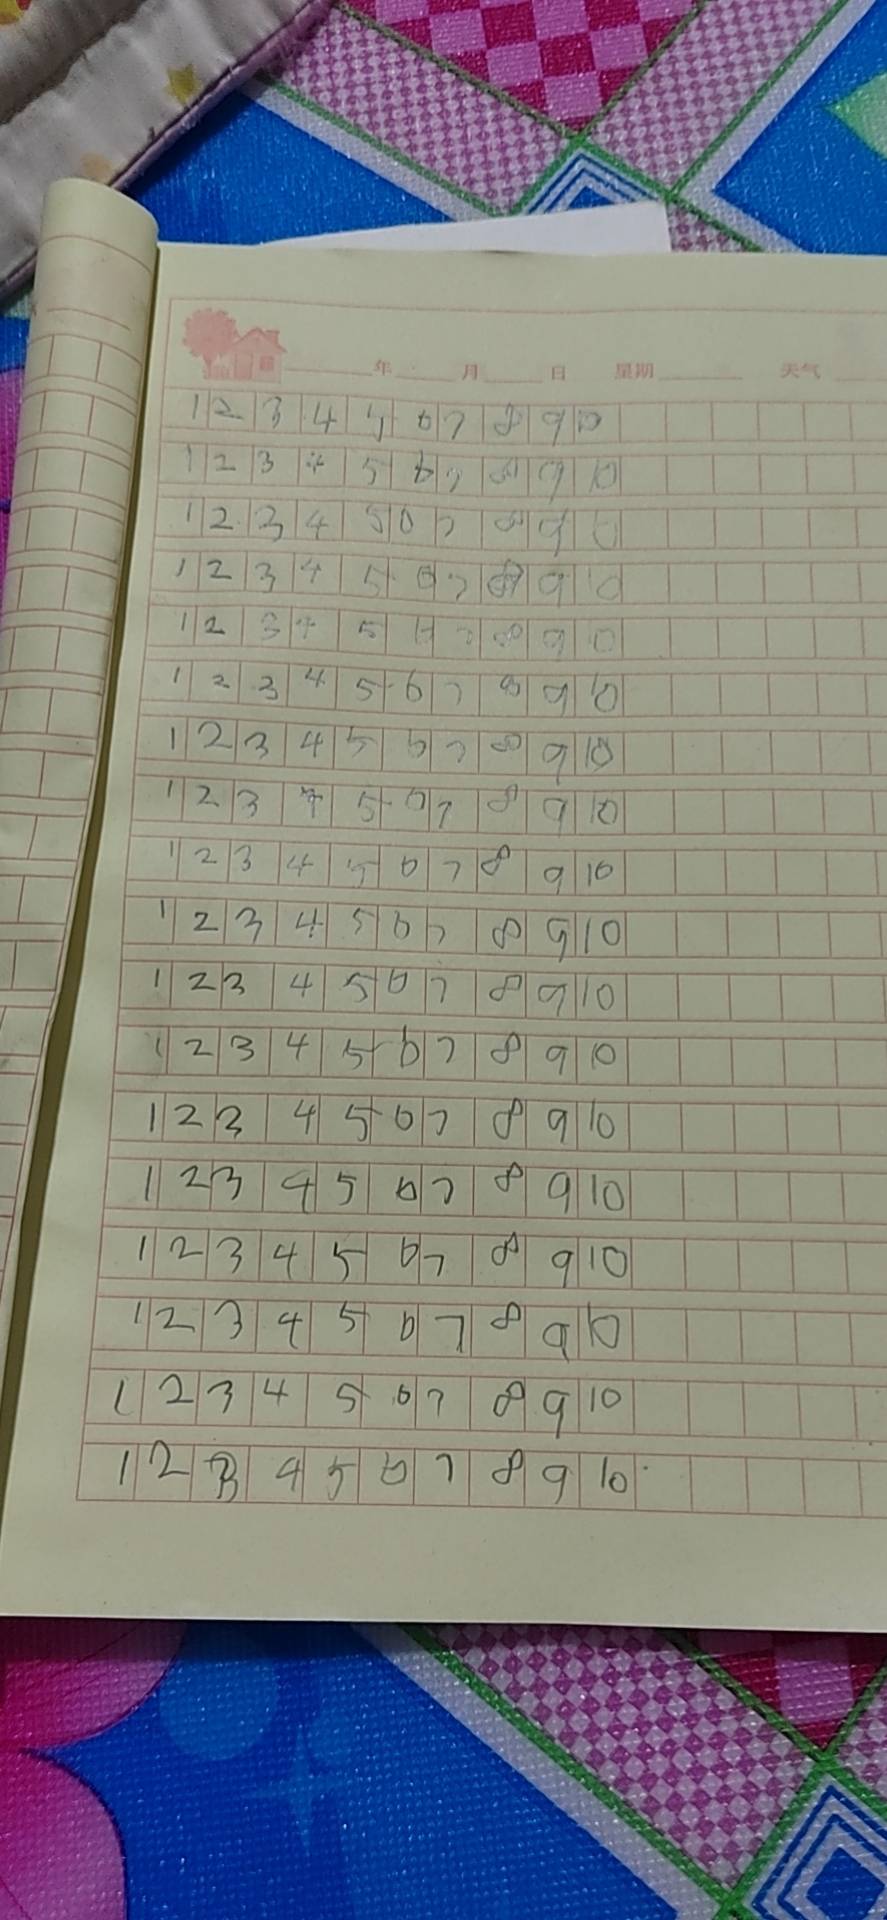 年 月 日 星期 天气
1 2 3 4 5 6 7 8 9 10
1 2 3 4 5 6 7 8 9 10
1 2 3 4 5 6 7 8 9 10
1 2 3 4 5 6 7 8 9 10
1 2 3 4 5 6 7 8 9 10
1 2 3 4 5 6 7 8 9 10
1 2 3 4 5 6 7 8 9 10
1 2 3 4 5 6 7 8 9 10
1 2 3 4 5 6 7 8 9 10
1 2 3 4 5 6 7 8 9 10
1 2 3 4 5 6 7 8 9 10
1 2 3 4 5 6 7 8 9 10
1 2 3 4 5 6 7 8 9 10
1 2 3 4 5 6 7 8 9 10
1 2 3 4 5 6 7 8 9 10
1 2 3 4 5 6 7 8 9 10
1 2 3 4 5 6 7 8 9 10
1 2 3 4 5 6 7 8 9 10